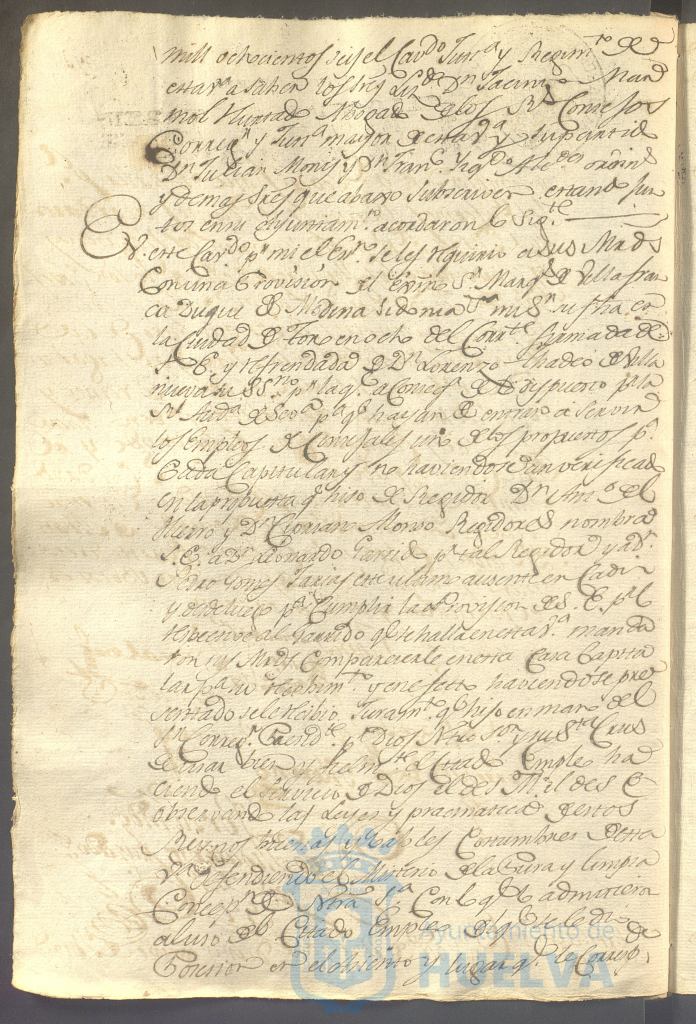 mill ochocientos seis el Cavdo Justa y Regimto de
esta va a saber los Sres Lizdo Dn Jacinto Mar
mol Hurtado Abogado de los Rs Consejos
Corregr y Justa mayor de esta va y su partido
Dn Julian Monis y Dn Franco Alcdes ordins
y demas Sres que abaxo subscriven estando jun
tos en su Ayuntamto acordaron lo sigte
En este Cavdo pr mi el Esno se les requirio a sus Mrds
Con una Provision del Exmo Sr Marqs de Villafran
ca Duque de Medina Sidonia mi Sr su fha en
la Ciudad de Toro en ocho del Corrte firmada de
S. E. y refrendada de Dn Lorenzo Thadeo de Villa
nueva su Ssrio pr la qe a Conseqa de lo dispuesto pr la
Rl Auda de Seva pa qe hayan de entrar a servir
los empleos de Consejales uno de los propuestos pr
Cada Capitular y no haviendose verificado
en la propuesta qe hiso de Regidor Dn Anto del
Hierro y Dn Cipriano Alonso Regidores nombra
S. E. a Dn Leonardo Garrido pr tal Regidor y a Dn
Pedro Gomes Farias este ultimo ausente en Cadiz
y deseosos pa Cumplir la Provision de S. E. pr lo
respectivo al Garrido qe se halla en esta va manda
ron sus Mrds Comparecerle en esta Casa Capitu
lar pa su Recibimto y en efecto haviendose pre
sentado se le recibio Juramto qe hiso en mano del
Sr Corregr pr Dios Ntro Sor y su Sta Crus
de usar bien y fielmte el Citado Empleo ha
ciendo el servicio de Dios el del Rl i el de S. E.
observando las Leyes y pracmaticas de estos
Reynos buenas y loables Costumbres de esta
va defendiendo el Misterio de la Pura y limpia
Concepn de Ntra Sa Con lo qe lo admitieron
al uso del Citado Empleo de qe se le dio
Posesion en el asiento y lugar qe le Correspe
Ayuntamiento de
HUELVA